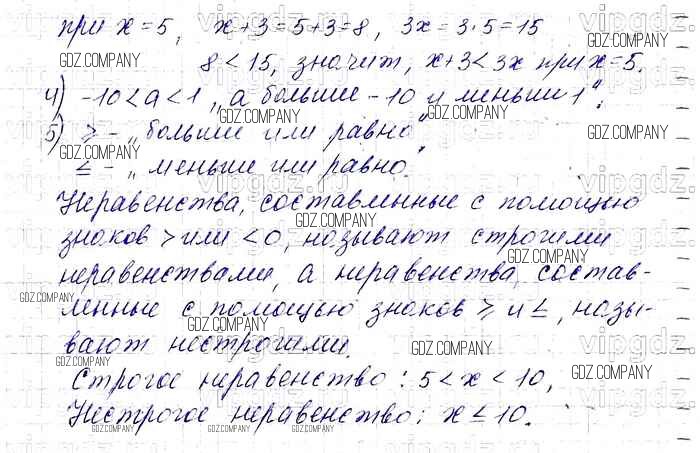 при x=5, x+3=5+3=8, 3x=3·5=15
8<15, значит, x+3<3x при x=5.
4) -10<a<1 „а больше -10 и меньше 1".
5) ≥ - „больше или равно"
≤ - „меньше или равно.
Неравенства, составленные с помощью
знаков > или <0, называют строгими
неравенствами, а неравенства, состав-
ленные с помощью знаков ≥ и ≤, назы-
вают нестрогими.
Строгое неравенство: 5<x<10,
Нестрогое неравенство: x≤10.
GDZ.COMPANY
vipgdz.ru